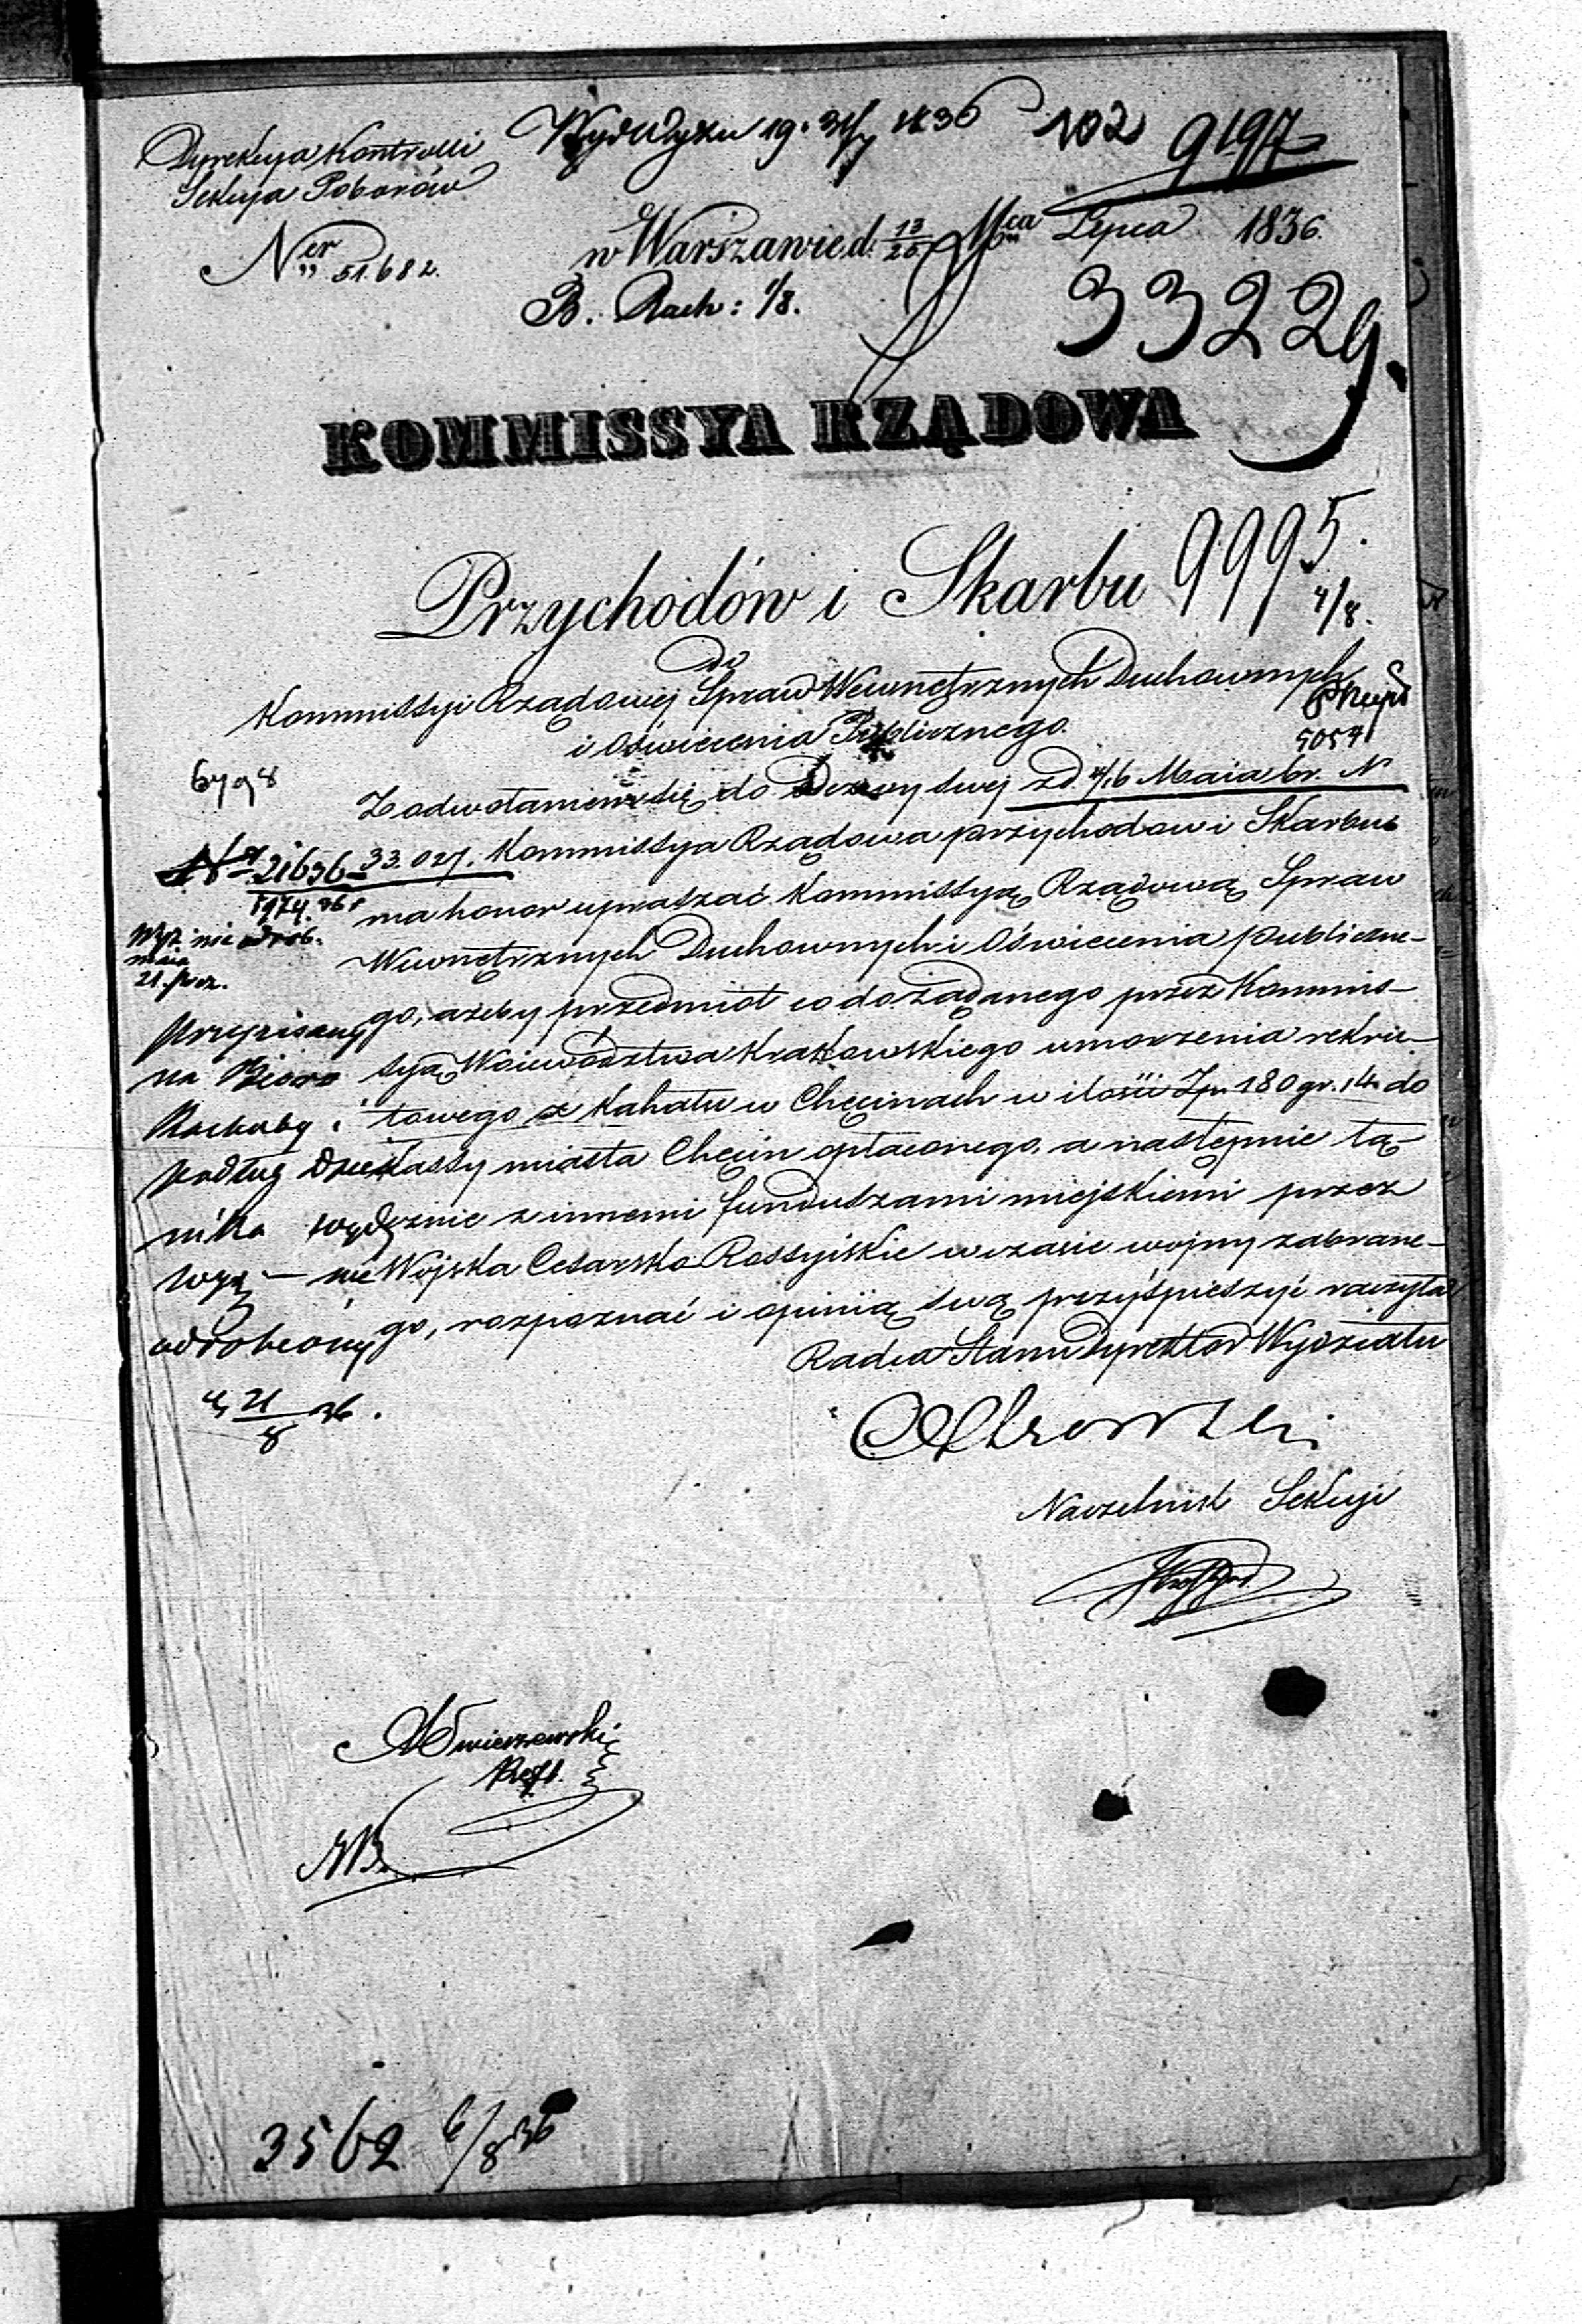 Dyrekcya Kontrolli
Sekcya Poborów
Ner 51.682.
1836
102
9197
w Warszawie d. 13/25 Mca Lipca 1836
B. Rach: 1/8.
33229.
KOMMISSYA RZĄDOWA
Przychodów i Skarbu
9995.
4/8.
do
Kommissyi Rządowej Spraw Wewnętrznych Duchownych
i Oświecenia Publicznego.
6798
Z odwołaniem się do Odezwy swej z d. 4/16 Maia br. N
33.027. Kommissya Rządowa przychodów i Skarbu
ma honor upraszać Kommissyą Rządową Spraw
Wewnętrznych Duchownych i Oświecenia publiczne-
go, ażeby przedmiot co do żądanego przez Kommis-
syą Woiewództwa Krakowskiego umorzenia rekru-
towego z Kahału w Chęcinach w ilości Zp. 180 gr. 14 do
Kassy miasta Chęcin opłaconego, a następnie łą-
cznie z innemi funduszami miejskiemi przez
Wojska Cesarsko Rossyiskie w czasie wojny zabrane-
go, rozpoznać i opinią swą przyśpieszyć raczyła
Radca Stanu Dyrektor Wydziału
Naczelnik Sekcyi
N 21656
Wyż. nie odrob.
21.
przypisany
na Bióro
Rachuby i
podług Dzien
nika
odrobiony
21/8 36.
NB.
3562 6/8 36